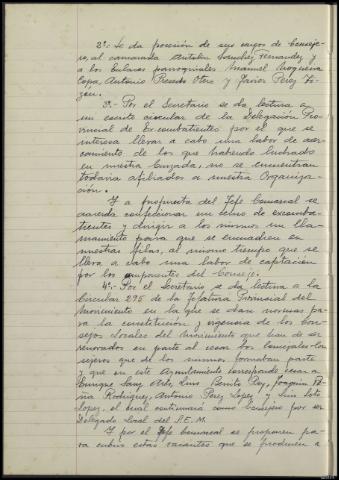 2º.- Se da posesión de sus cargos de Conseje-
ro, al camarada Antolin Sanchez Fernandez y
a los Enlaces franquinales Manuel Noguera
Copa, Antonio Otero y Javier Perez
3º.- Por el Secretario se da lectura a
un escrito circular de la Delegación Pro-
vincial de Excombatientes por el que se
interesa llevar a cabo una labor de acer-
camiento de los que habiendo luchado
en nuestra Cruzada, no se encuentran
todavia afiliados a nuestra Organiza-
ción.
Y a propuesta del Jefe Comarcal se
acuerda confeccionar un censo de excomba-
tientes y dirigir a los mismos un lla-
mamiento para que se encuadren en
nuestras filas, al mismo tiempo que se
lleva a cabo una labor de captación
por los componentes del Consejo.
4º.- Por el Secretario se da lectura a la
Circular 295 de la Jefatura Provincial del
Movimiento en la que se dan normas pa-
ra la constitución y vigencia de los Con-
sejos Locales del Movimiento que han de ser
renovados en parte al cesar los Concejales Con-
sejeros que de los mismos formaban parte
y que en este Ayuntamiento corresponde cesar a
Enrique Sanz, Luis Benito Rey, Joaquin
Rodriguez, Antonio Perez Lopez y Luis Soto
Lopez, el cual continuará como Consejero por ser
Delegado Local del S.E.M.
Y por el Jefe Comarcal se proponen pa-
ra cubrir estas vacantes que se producen a